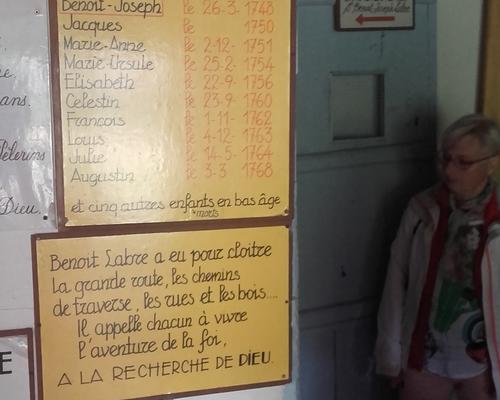 Benoit-Joseph le 26-3- 1748
Jacques le 1750
Marie-Anne le 2-12- 1751
Marie-Ursule le 25-2- 1754
Elisabeth le 22-9- 1756
Celestin le 23-9- 1760
Francois le 1-11- 1762
Louis le 4-12- 1763
Julie le 14-5- 1764
Augustin le 3-3 1768
et cinq autres enfants en bas âge
morts
Benoit Labre a eu pour cloitre
la grande route, les chemins
de traverse, les rues et les bois....
Il appelle chacun à vivre
l'aventure de la foi,
A LA RECHERCHE DE DIEU.
ans.
Pèlerins
Dieu.
E
St Benoit Joseph Labre